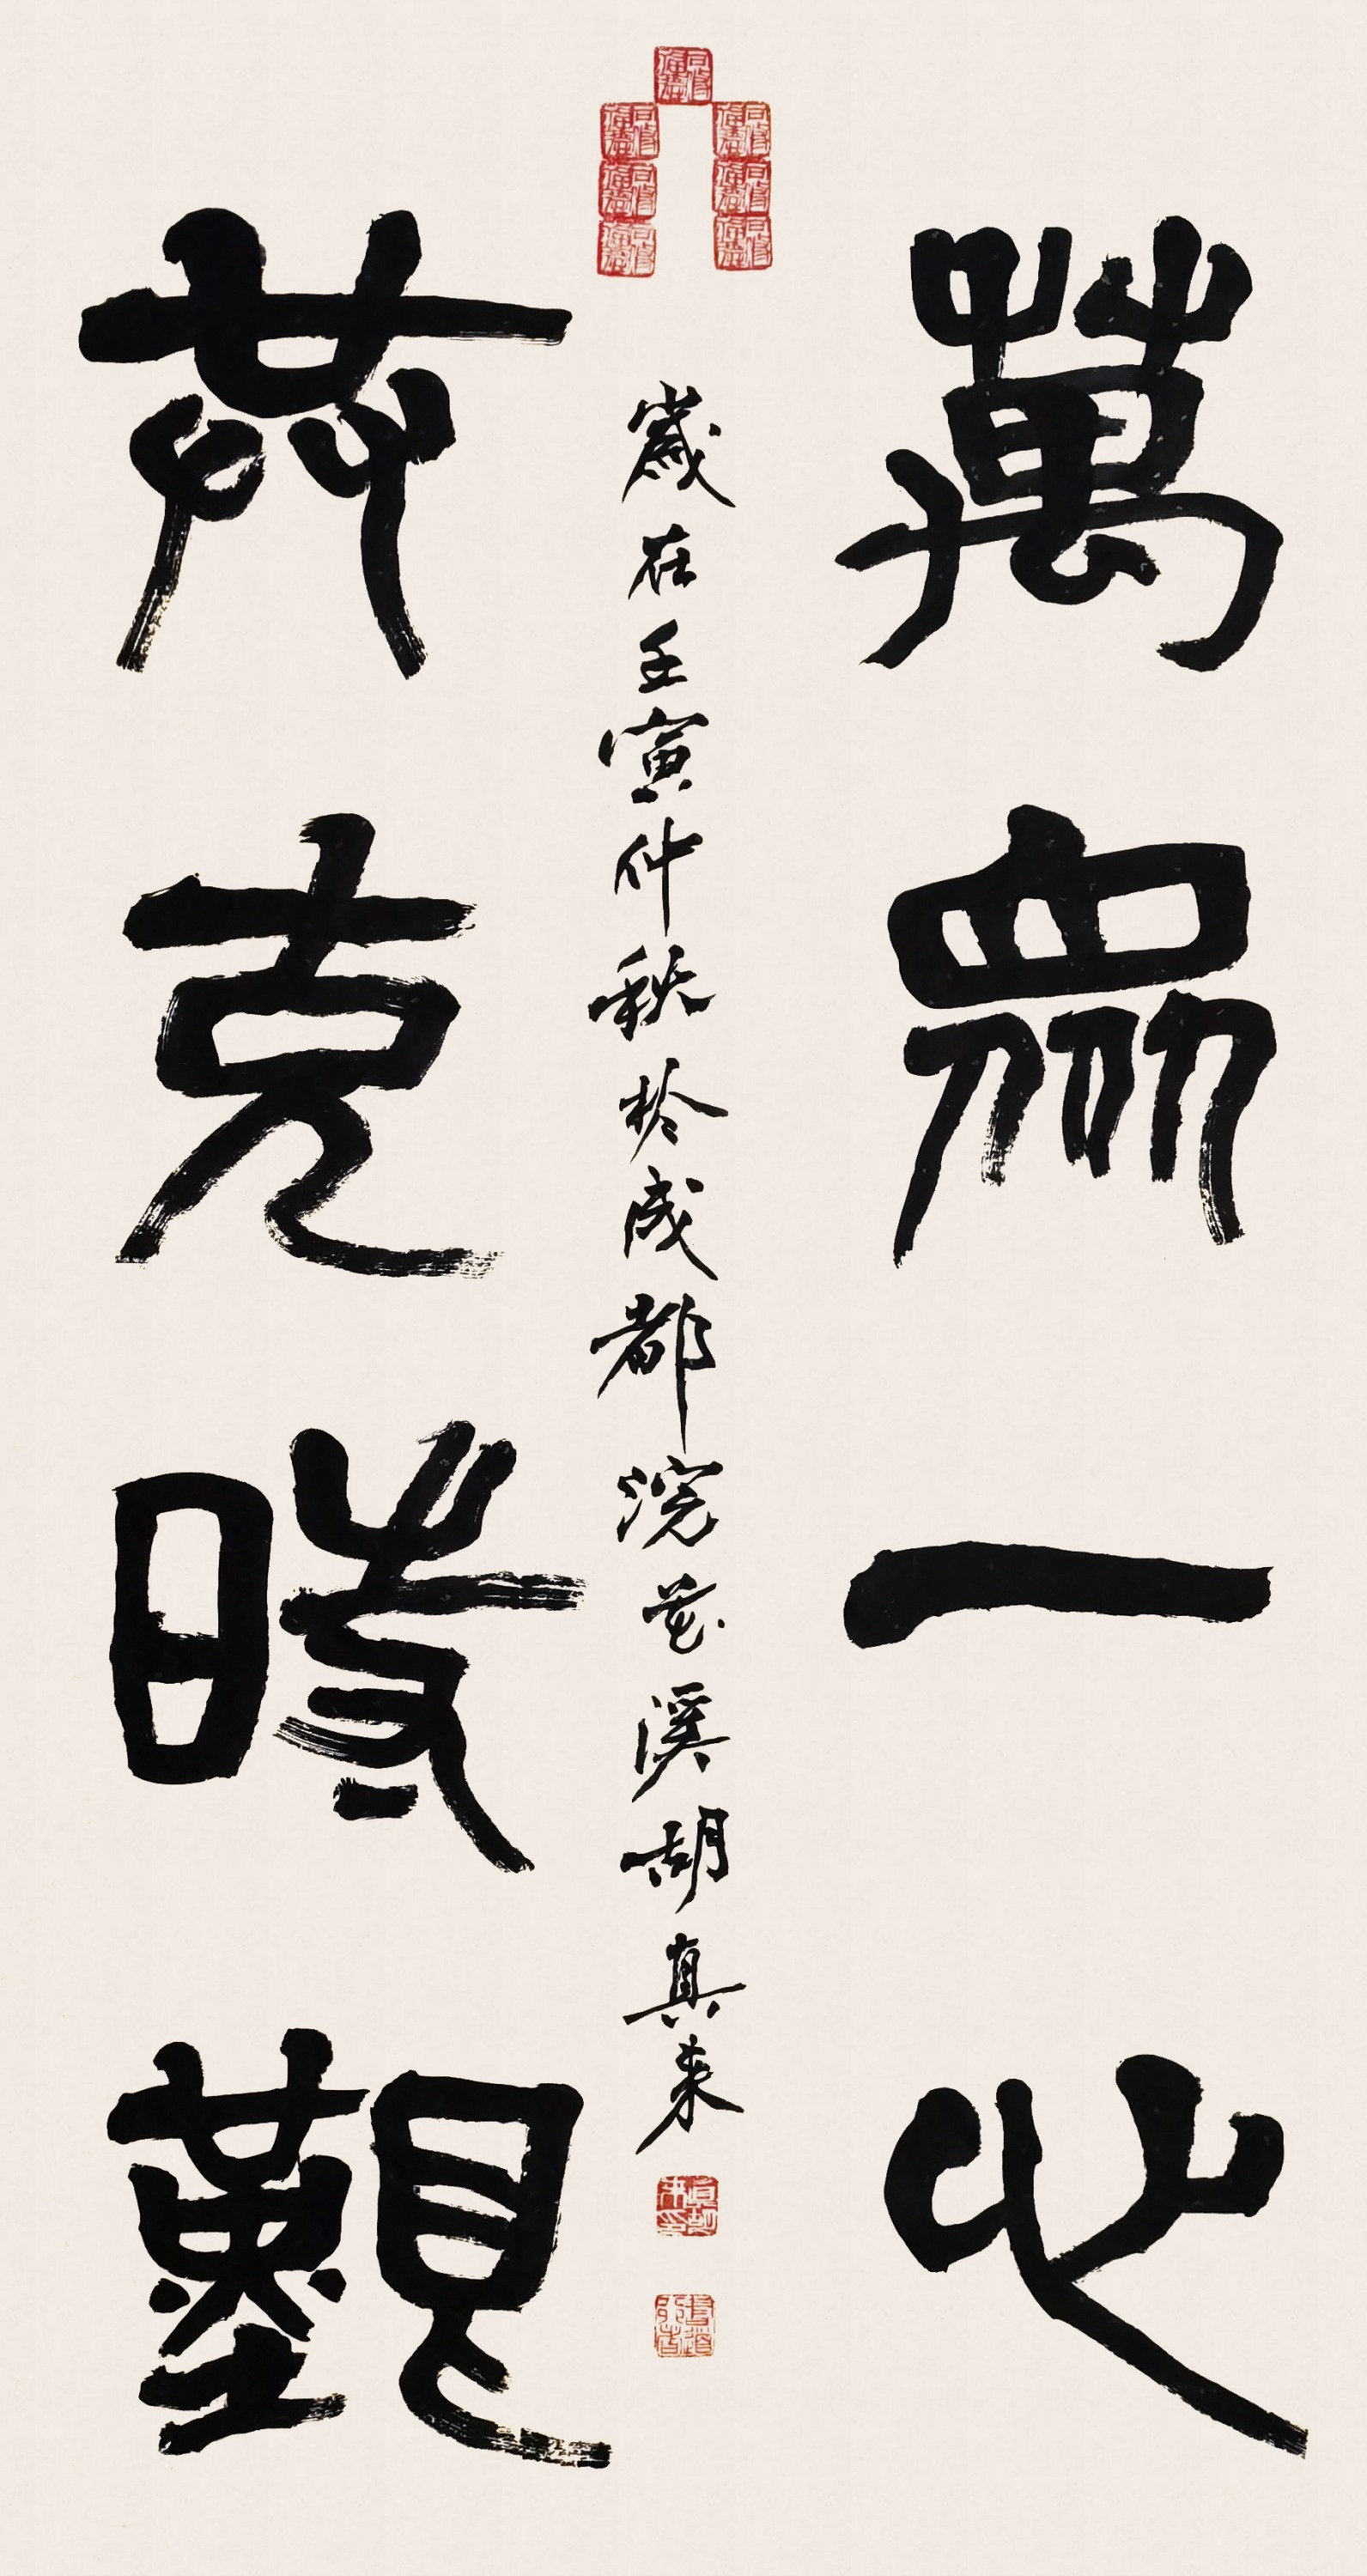 萬眾一心
共克時艱
歲在壬寅仲秋於成都浣花溪胡真来